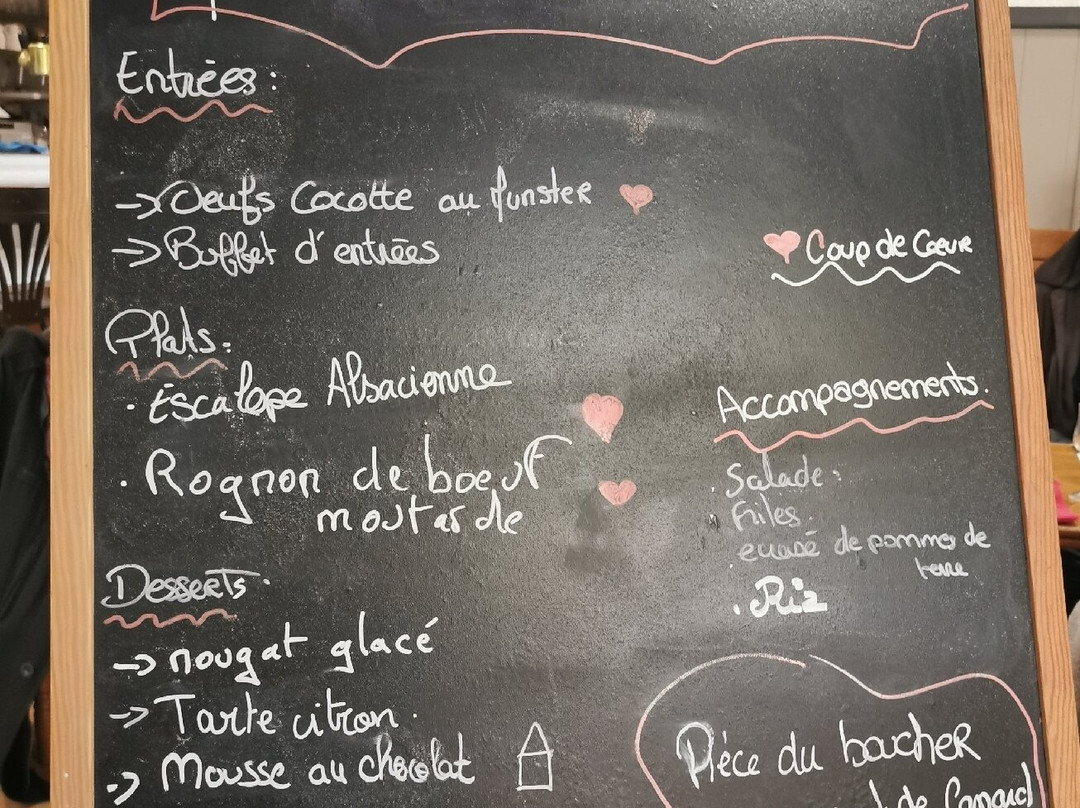 Entrées:
→ Oeufs Cocotte au Munster
→ Buffet d'entrées
Coup de Coeur
Plats:
· Escalope Alsacienne
· Rognon de boeuf
moutarde
Accompagnements.
. Salade:
Frites.
. écrasé de pommes de
terre
. Riz
Desserts.
→ nougat glacé
→ Tarte citron.
→ Mousse au chocolat
Pièce du boucher
de Canard